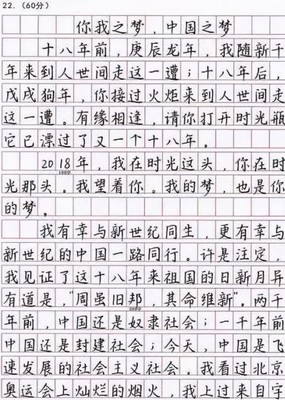 22.(60分)
你我之梦,中国之梦
十八年前,庚辰龙年,我随新千
年来到人世间走这一遭;十八年后,
戊戌狗年,你接过火炬来到人世间走
这一遭。有缘相逢,请你打开时光瓶
它已漂过了又一个十八年。
2018年,我在时光这头,你在时
光那头。我望着你。我的梦,也是你
的梦。
我有幸与新世纪同生,更有幸与
新世纪的中国一路同行。许是注定,
我见证了这十八年来祖国的日新月异
有道是,“周虽旧邦,其命维新”,两千
年前,中国还是奴隶社会;一千年前
中国还是封建社会;今天,中国是飞
速发展的社会主义社会。我看过北京
奥运会上灿烂的烟火,我上过来自宇